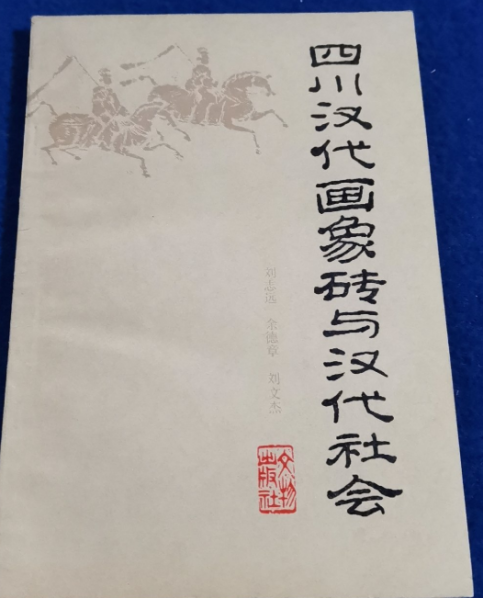 四川汉代画象砖与汉代社会
刘志远 余德章 刘文杰
文物
出版社